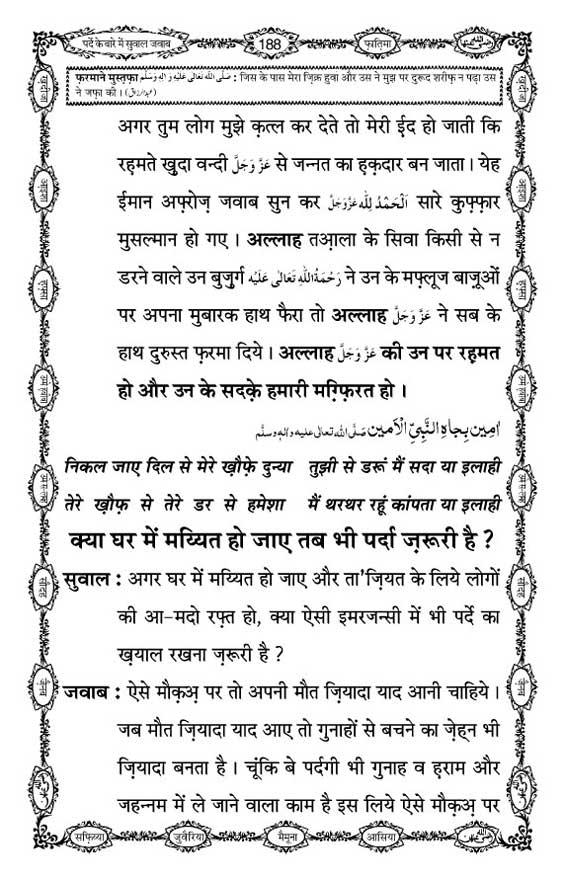 पर्दे के बारे में सुवाल जवाब
188
फ़ातिमा
फ़रमाने मुस्तफ़ा صَلَّى اللهُ تَعَالٰى عَلَيْهِ وَاٰلِهٖ وَسَلَّم : जिस के पास मेरा ज़िक्र हुवा और उस ने मुझ पर दुरूद शरीफ़ न पढ़ा उस
ने जफ़ा की। (عبدالرزاق)
अगर तुम लोग मुझे क़त्ल कर देते तो मेरी ईद हो जाती कि
रहमते खुदा वन्दी عَزَّوَجَلَّ से जन्नत का ह़क़दार बन जाता। येह
ईमान अफ़्रोज़ जवाब सुन कर اَلْحَمْدُ لِلّٰه عَزَّوَجَلَّ सारे कुफ़्फ़ार
मुसल्मान हो गए। अल्लाह तआ़ला के सिवा किसी से न
डरने वाले उन बुज़ुर्ग رَحْمَةُاللهِ تَعَالٰى عَلَيْه ने उन के मफ़्लूज बाज़ूओं
पर अपना मुबारक हाथ फैरा तो अल्लाह عَزَّوَجَلَّ ने सब के
हाथ दुरुस्त फ़रमा दिये। अल्लाह عَزَّوَجَلَّ की उन पर रह़मत
हो और उन के सदक़े हमारी मग़्फ़िरत हो।
اٰمِين بِجاهِ النَّبِيِّ الْاَمين صَلَّى اللهُ تعالٰى عليه واٰلهٖ وسلَّم
निकल जाए दिल से मेरे ख़ौफ़े दुन्या तुझी से डरूं मैं सदा या इलाही
तेरे ख़ौफ़ से तेरे डर से हमेशा मैं थरथर रहूं कांपता या इलाही
क्या घर में मय्यित हो जाए तब भी पर्दा ज़रूरी है ?
सुवाल : अगर घर में मय्यित हो जाए और ता'ज़ियत के लिये लोगों
की आ-मदो रफ़्त हो, क्या ऐसी इमरजन्सी में भी पर्दे का
ख़याल रखना ज़रूरी है ?
जवाब : ऐसे मौक़अ़ पर तो अपनी मौत ज़ियादा याद आनी चाहिये।
जब मौत ज़ियादा याद आए तो गुनाहों से बचने का ज़ेह्न भी
ज़ियादा बनता है। चूंकि बे पर्दगी भी गुनाह व ह़राम और
जहन्नम में ले जाने वाला काम है इस लिये ऐसे मौक़अ़ पर
सफ़िय्या
जुवैरिया
मैमूना
आसिया